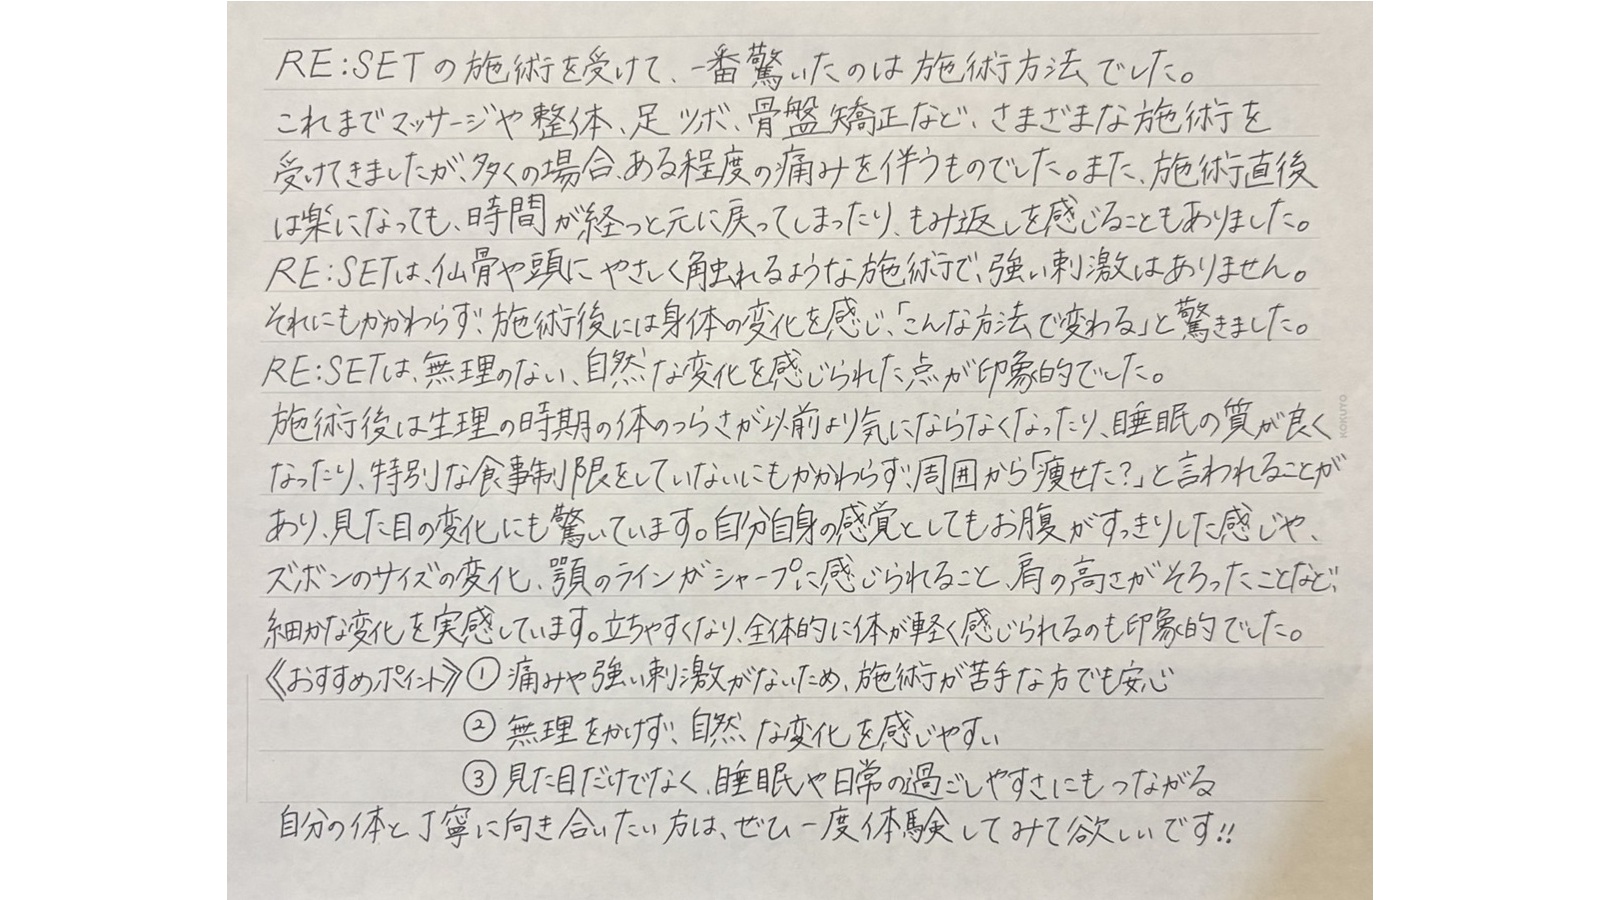 RE:SETの施術を受けて、一番驚いたのは施術方法でした。
これまでマッサージや整体、足ツボ、骨盤矯正など、さまざまな施術を
受けてきましたが、多くの場合、ある程度の痛みを伴うものでした。また、施術直後
は楽になっても、時間が経つと元に戻ってしまったり、もみ返しを感じることもありました。
RE:SETは、仙骨や頭にやさしく触れるような施術で、強い刺激はありません。
それにもかかわらず、施術後には身体の変化を感じ、「こんな方法で変わる」と驚きました。
RE:SETは、無理のない、自然な変化を感じられた点が印象的でした。
施術後は生理の時期の体のつらさが以前より気にならなくなったり、睡眠の質が良く
なったり、特別な食事制限をしていないにもかかわらず、周囲から「痩せた?」と言われることが
あり、見た目の変化にも驚いています。自分自身の感覚としてもお腹がすっきりした感じや、
ズボンのサイズの変化、顎のラインがシャープに感じられること、肩の高さがそろったことなど、
細かな変化を実感しています。立ちやすくなり、全体的に体が軽く感じられるのも印象的でした。
《おすすめポイント》① 痛みや強い刺激がないため、施術が苦手な方でも安心
② 無理をかけず、自然な変化を感じやすい
③ 見た目だけでなく、睡眠や日常の過ごしやすさにもつながる
自分の体と丁寧に向き合いたい方は、ぜひ一度体験してみて欲しいです!!
KOKUYO